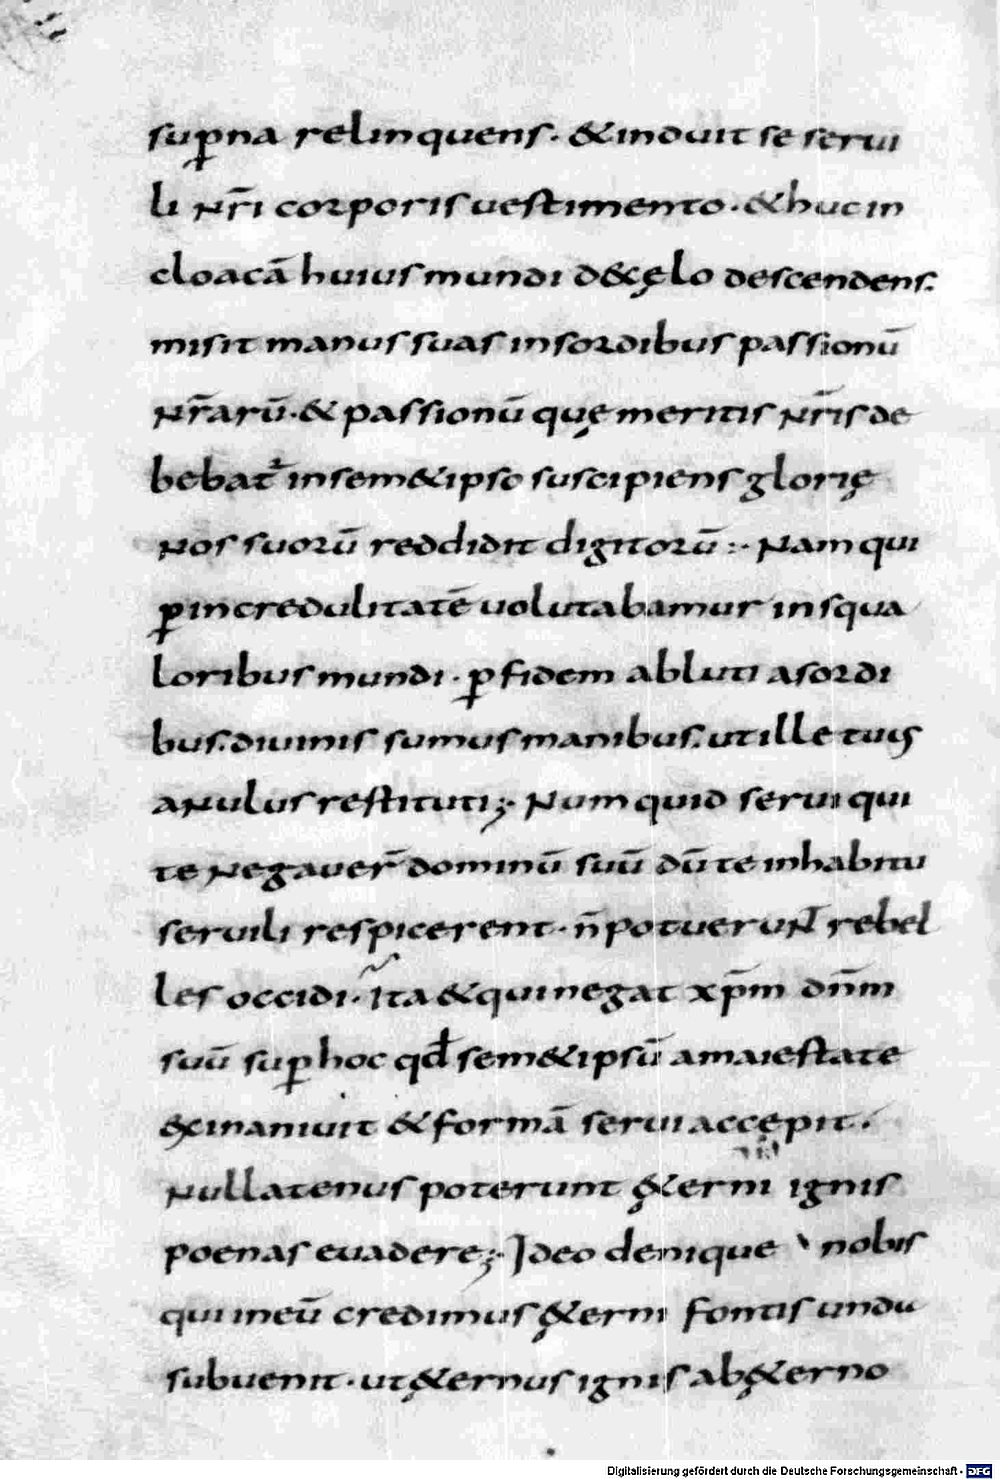 sup̄na relinquens· &induit se serui
li nr̄i corporis uestimento· & huc in
cloacā huius mundi d& cęlo descendens·
misit manus suas insordibus passionū
nr̄arū· & passionū quę meritis nr̄is de
bebat᷑ insem&ipso suscipiens glorię
nos suorū reddidit digitorū:· Nam qui
ꝑ incredulitatē uolutabamur insqua
loribus mundi· ꝑ fidem abluti asordi
bus· diuinis sumus manibus· utille tuis
anulus restituti;· Numquid serui qui
te negauer̄ dominū suū dū te inhabitu
seruili respicerent· n̄ potuerunt rebel
les occidi· ita & qui negat xp̄m dn̄m
suū suꝑ hoc qđ sem&ipsū amaiestate
exinaniuit & formā serui accępit·
Nullatenus poterunt ę&erni ignis
poenas euadere;· Ideo denique nobis
qui ineū credimus ę&erni fontis undu
subuenit· ut ę&ernus ignis ab ę&erno
Digitalisierung gefördert durch die Deutsche Forschungsgemeinschaft - DFG